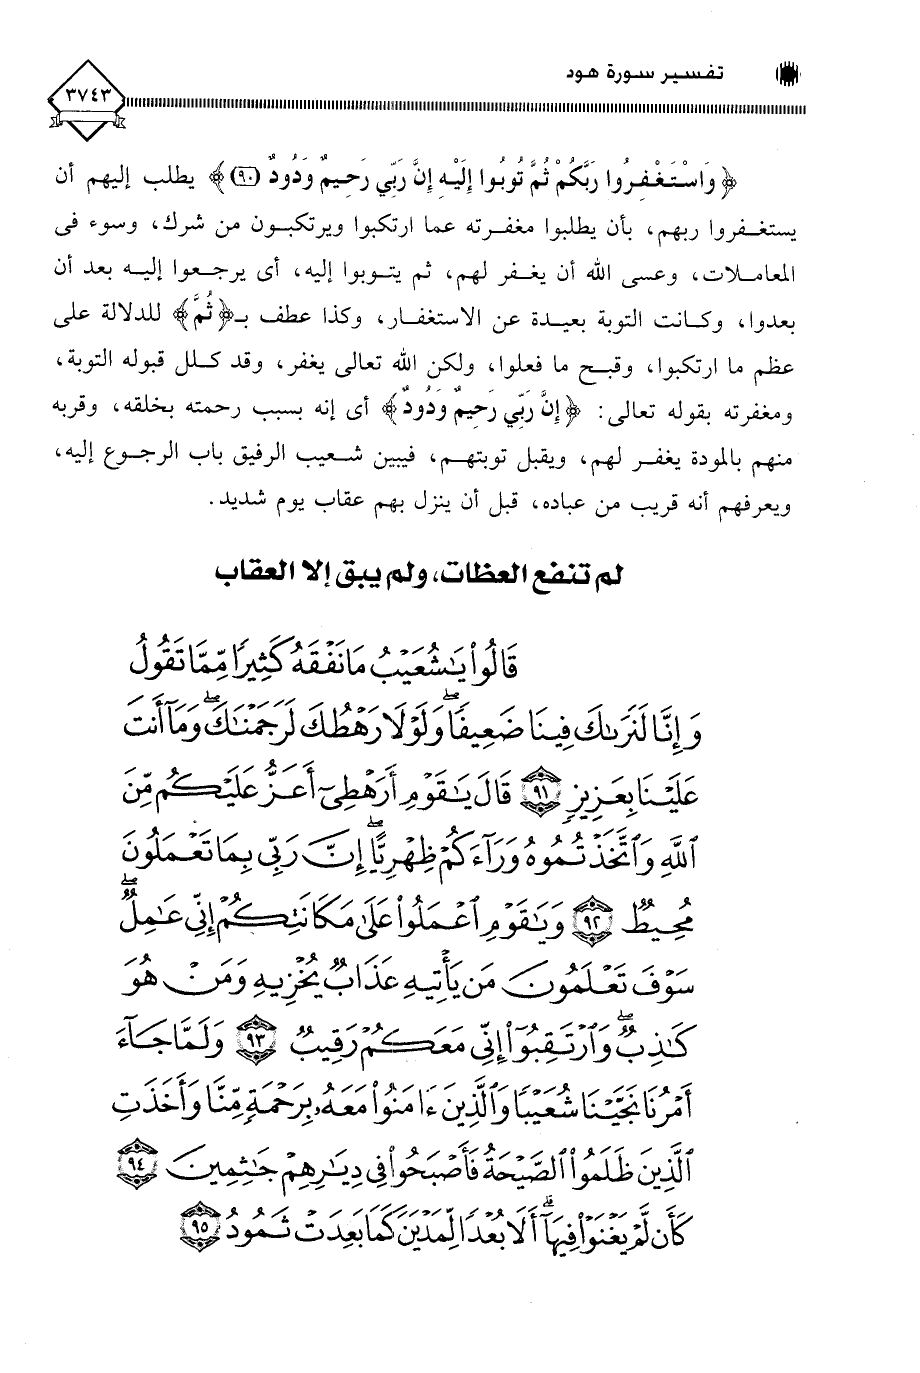 تفسير سورة هود
٣٧٤٣
﴿ وَاسْتَغْفِرُوا رَبَّكُمْ ثُمَّ تُوبُوا إِلَيْهِ إِنَّ رَبِّي رَحِيمٌ وَدُودٌ (٩٠) ﴾ يطلب إليهم أن
يستغفروا ربهم، بأن يطلبوا مغفرته عما ارتكبوا ويرتكبون من شرك، وسوء فى
المعاملات، وعسى الله أن يغفر لهم، ثم يتوبوا إليه، أى يرجعوا إليه بعد أن
بعدوا، وكانت التوبة بعيدة عن الاستغفار، وكذا عطف بـ﴿ ثُمَّ ﴾ للدلالة على
عظم ما ارتكبوا، وقبح ما فعلوا، ولكن الله تعالى يغفر، وقد كلل قبوله التوبة،
ومغفرته بقوله تعالى: ﴿ إِنَّ رَبِّي رَحِيمٌ وَدُودٌ ﴾ أى إنه بسبب رحمته بخلقه، وقربه
منهم بالمودة يغفر لهم، ويقبل توبتهم، فيبين شعيب الرفيق باب الرجوع إليه،
ويعرفهم أنه قريب من عباده، قبل أن ينزل بهم عقاب يوم شديد.
لم تنفع العظات، ولم يبق إلا العقاب
قَالُوا۟ يَٰشُعَيْبُ مَا نَفْقَهُ كَثِيرًا مِّمَّا تَقُولُ
وَإِنَّا لَنَرَىٰكَ فِينَا ضَعِيفًا ۖ وَلَوْلَا رَهْطُكَ لَرَجَمْنَٰكَ ۖ وَمَآ أَنتَ
عَلَيْنَا بِعَزِيزٍ ٩١ قَالَ يَٰقَوْمِ أَرَهْطِىٓ أَعَزُّ عَلَيْكُم مِّنَ
ٱللَّهِ وَٱتَّخَذْتُمُوهُ وَرَآءَكُمْ ظِهْرِيًّا ۖ إِنَّ رَبِّى بِمَا تَعْمَلُونَ
مُحِيطٌ ٩٢ وَيَٰقَوْمِ ٱعْمَلُوا۟ عَلَىٰ مَكَانَتِكُمْ إِنِّى عَٰمِلٌ ۖ
سَوْفَ تَعْلَمُونَ مَن يَأْتِيهِ عَذَابٌ يُخْزِيهِ وَمَنْ هُوَ
كَٰذِبٌ ۖ وَٱرْتَقِبُوٓا۟ إِنِّى مَعَكُمْ رَقِيبٌ ٩٣ وَلَمَّا جَآءَ
أَمْرُنَا نَجَّيْنَا شُعَيْبًا وَٱلَّذِينَ ءَامَنُوا۟ مَعَهُۥ بِرَحْمَةٍ مِّنَّا وَأَخَذَتِ
ٱلَّذِينَ ظَلَمُوا۟ ٱلصَّيْحَةُ فَأَصْبَحُوا۟ فِى دِيَٰرِهِمْ جَٰثِمِينَ ٩٤
كَأَن لَّمْ يَغْنَوْا۟ فِيهَآ ۗ أَلَا بُعْدًا لِّمَدْيَنَ كَمَا بَعِدَتْ ثَمُودُ ٩٥